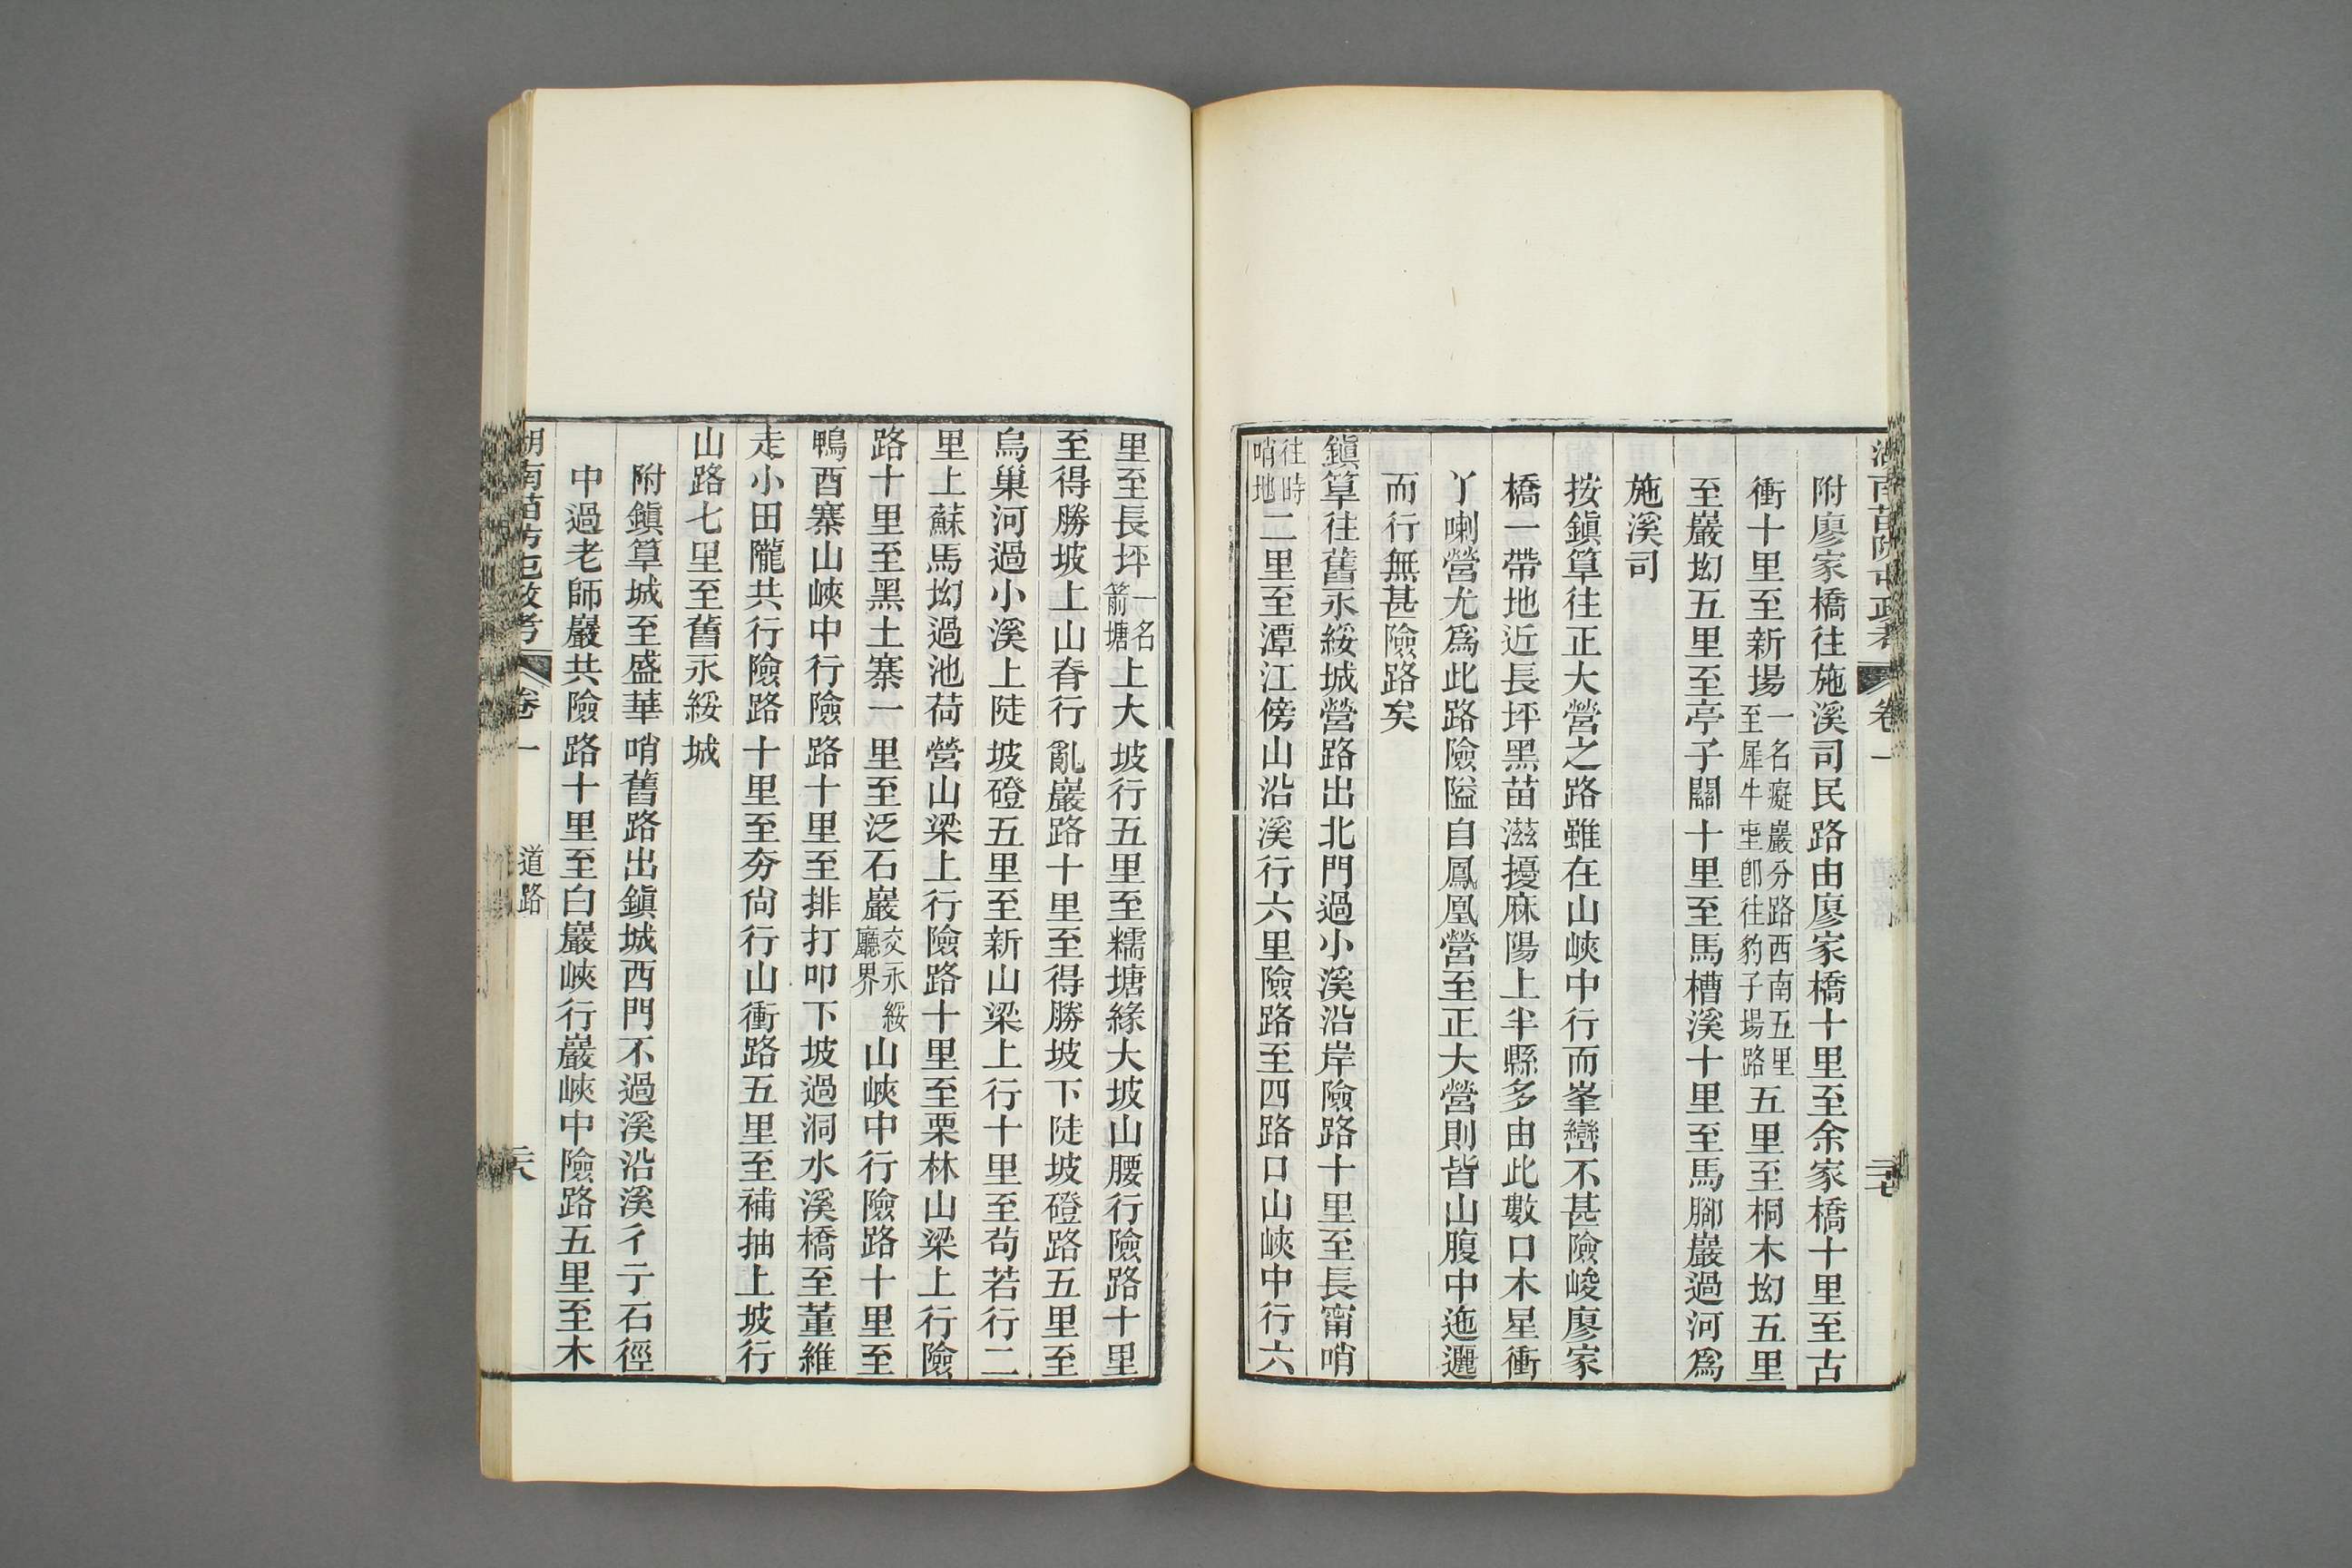 湖南苗防屯政考 卷一 二七
附廖家橋往施溪司民路由廖家橋十里至余家橋十里至古
衝十里至新場一名癡巖分路西南五里至犀牛坉卽往豹子場路五里至桐木坳五里
至巖坳五里至亭子關十里至馬槽溪十里至馬腳巖過河爲
施溪司
按鎭筸往正大營之路雖在山峽中行而峯巒不甚險峻廖家
橋一帶地近長坪黑苗滋擾麻陽上半縣多由此數口木星衝
丫喇營尤爲此路險隘自鳳凰營至正大營則皆山腹中迤邐
而行無甚險路矣
鎭筸往舊永綏城營路出北門過小溪沿岸險路十里至長甯哨
往時哨地二里至潭江傍山沿溪行六里險路至四路口山峽中行六
里至長坪一名箭塘上大坡行五里至糯塘緣大坡山腰行險路十里
至得勝坡上山脊行亂巖路十里至得勝坡下陡坡磴路五里至
烏巢河過小溪上陡坡磴五里至新山梁上行十里至苟若行二
里上蘇馬坳過池荷營山梁上行險路十里至栗林山梁上行險
路十里至黑土寨一里至泛石巖交永綏廳界山峽中行險路十里至
鴨酉寨山峽中行險路十里至排打叩下坡過洞水溪橋至董維
走小田隴共行險路十里至夯尙行山衝路五里至補抽上坡行
山路七里至舊永綏城
附鎭筸城至盛華哨舊路出鎭城西門不過溪沿溪彳亍石徑
中過老師巖共險路十里至白巖峽行巖峽中險路五里至木
湖南苗防屯政考 卷一 道路 二八